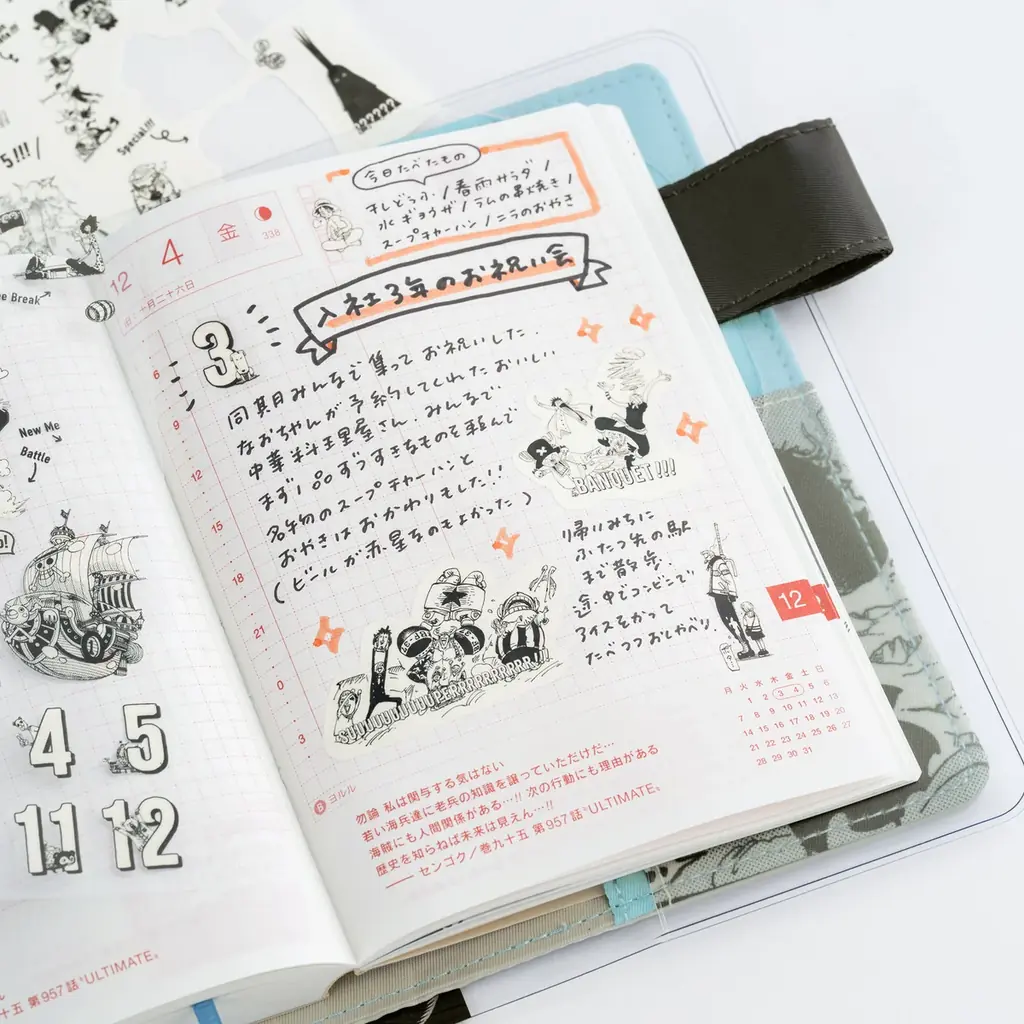 Special!!!
5!!!
e Break
New Me
Battle
4
5
11
12
十五 第957話 “ULTIMATE”
12
4
金
338
旧 十月二十六日
今日たべたもの
干しどうふ / 春雨サラダ /
水ギョウザ / ラムの串焼き /
スープチャーハン / ニラのおやき
入社3年のお祝い会
3
同期みんなで集ってお祝いした.
なおちゃんが予約してくれたおいしい
中華料理屋さん. みんなで
まず1品ずつすきなものを頼んで
名物のスープチャーハンと
おやきはおかわりもした!!
(ビールが赤星なのもよかった)
BANQUET!!!
帰りみちに
ふたつ先の駅
まで散歩.
途中でコンビニで
アイスをかって
たべつつおしゃべり.
SUUUUUUUUPERRRRRRRRRR!!!
6
9
12
15
18
21
0
3
12
月 火 水 木 金 土 日
1 2 3 4 5 6
7 8 9 10 11 12 13
14 15 16 17 18 19 20
21 22 23 24 25 26 27
28 29 30 31
ヨルル
勿論 私は関与する気はない
若い海兵達に老兵の知識を譲っていただけだ…
海賊にも人間関係がある…!! 次の行動にも理由がある
歴史を知らねば未来は見えん…!!
── センゴク／巻九十五 第957話 “ULTIMATE”